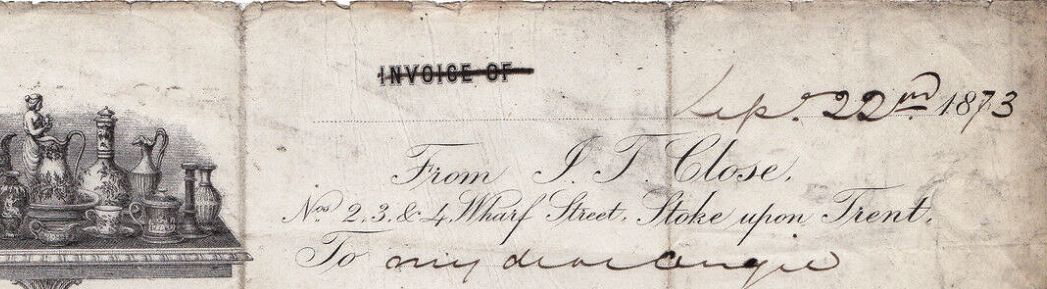 INVOICE OF
Sept. 22nd 1873
From J. T. Close.
Nos 2, 3, & 4, Wharf Street, Stoke upon Trent.
To my dear Angie